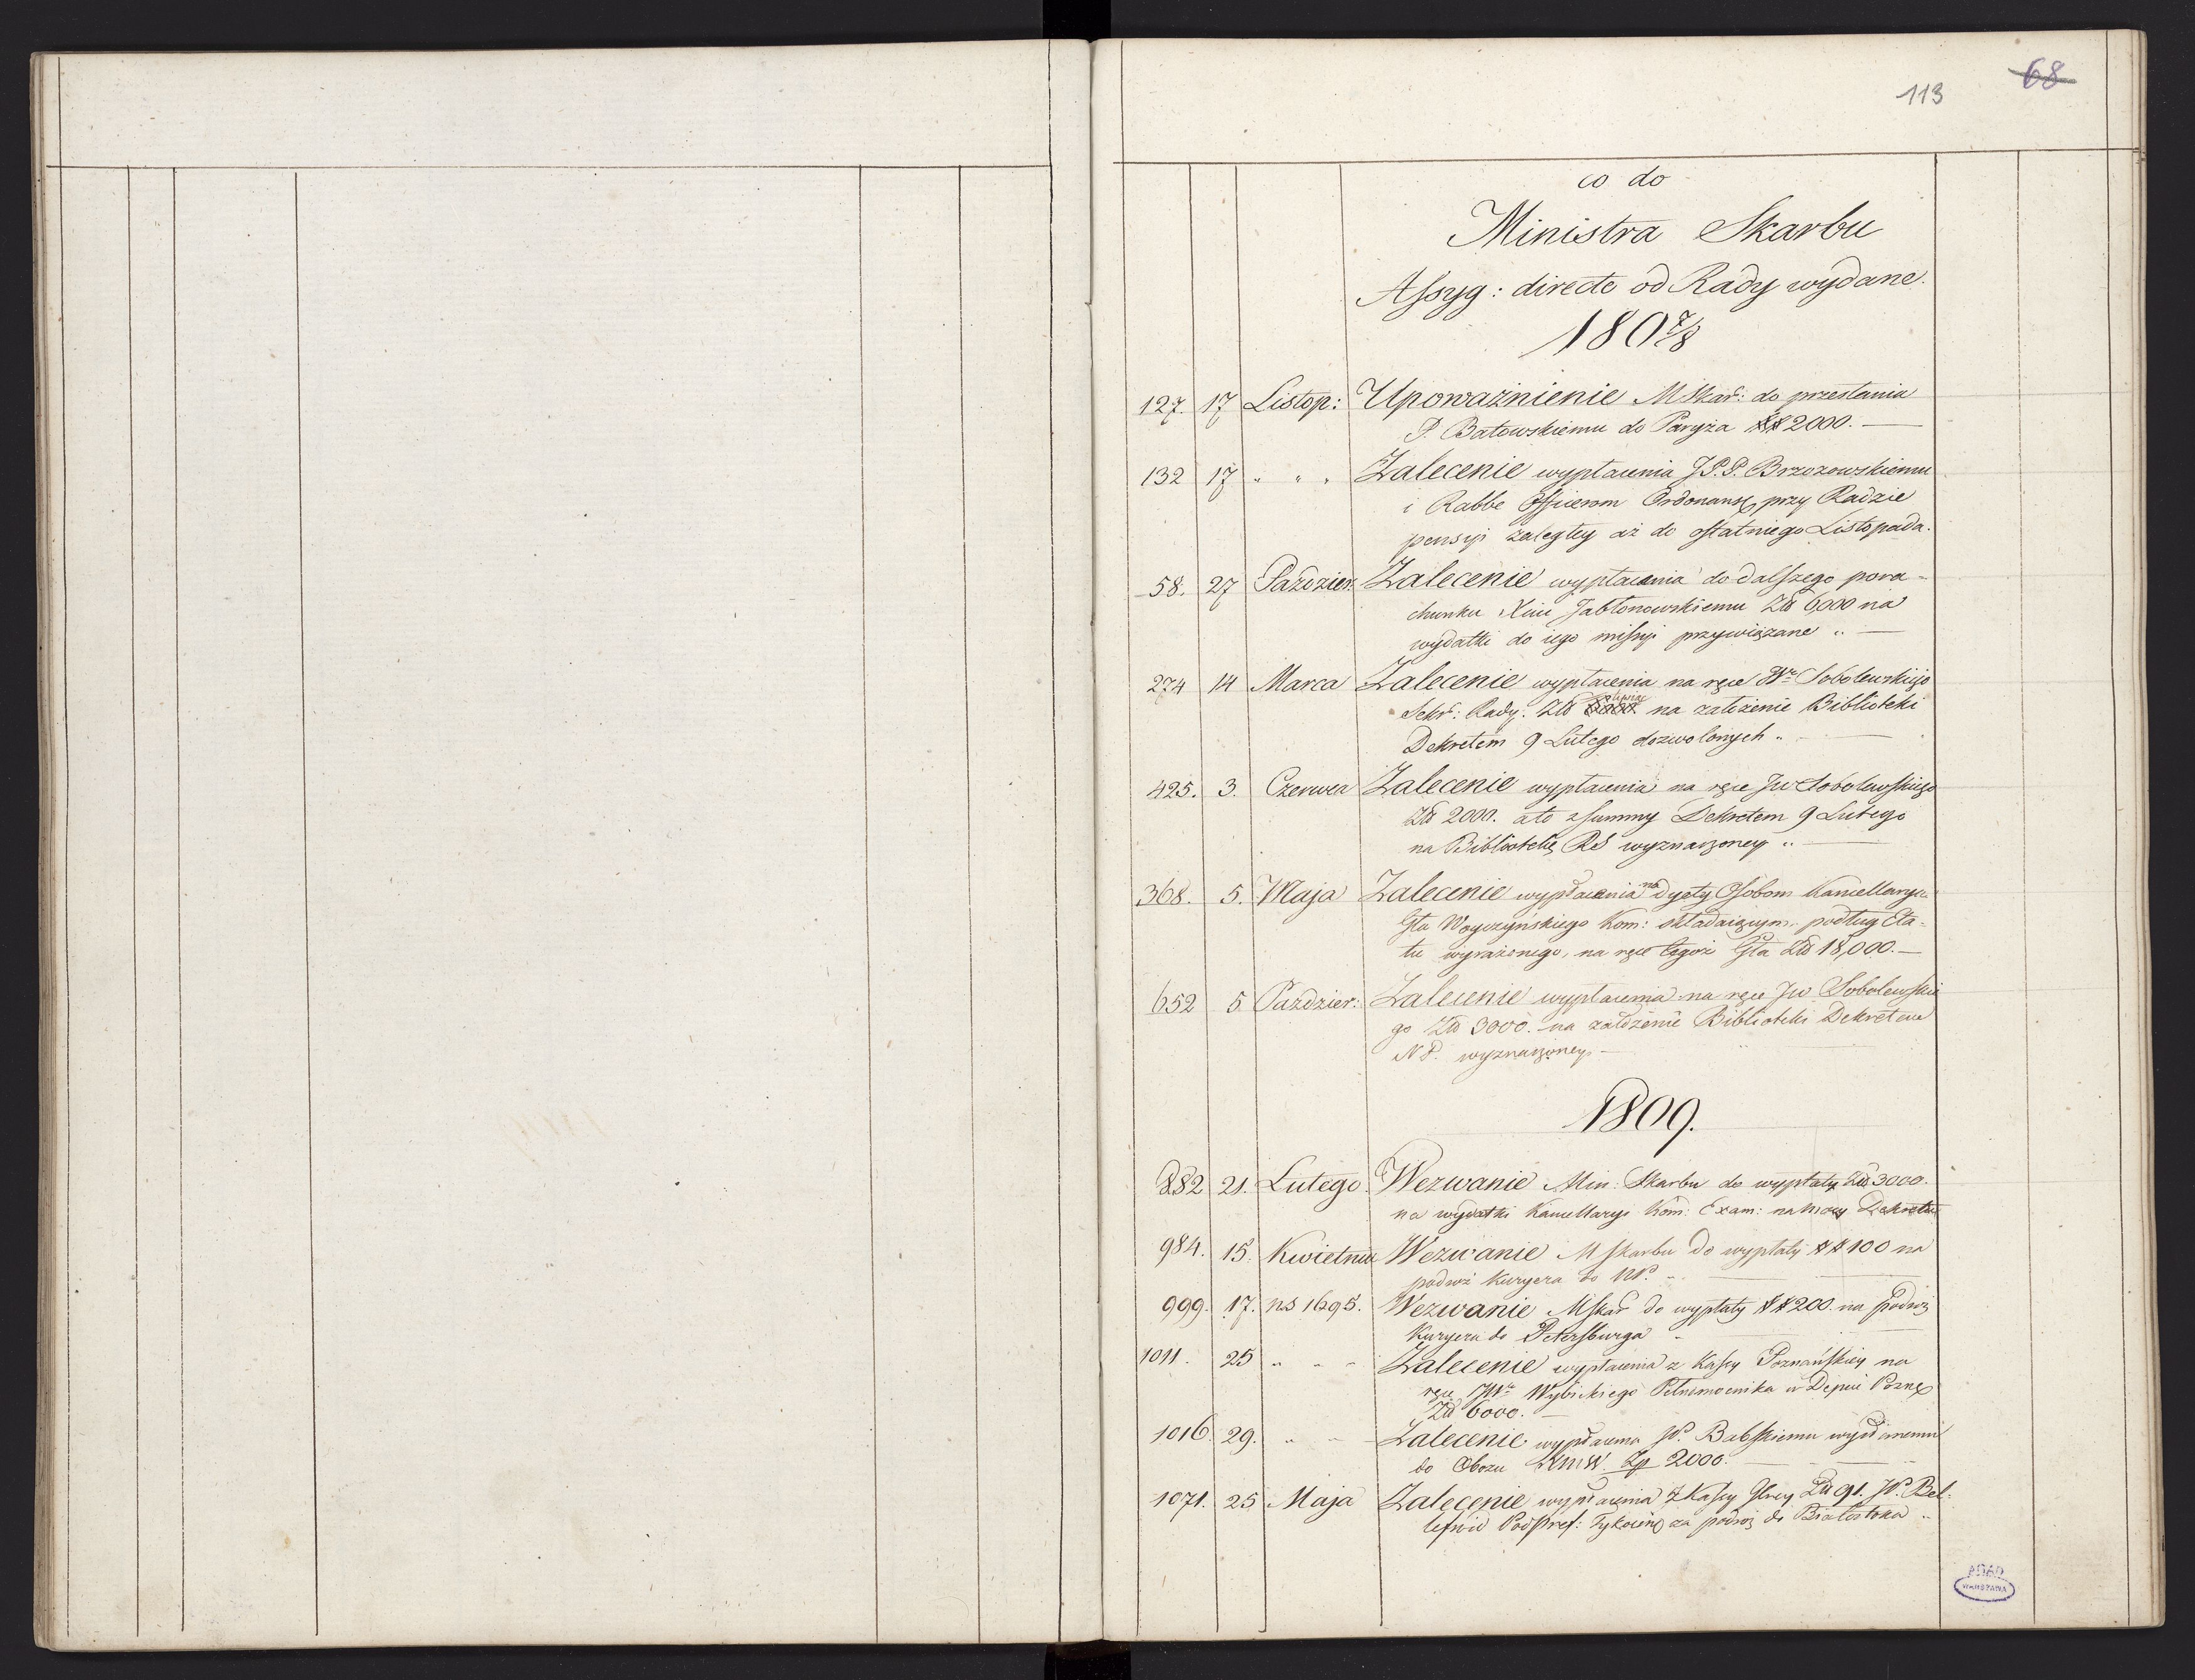 113 68
co do
Ministra Skarbu
Assyg: directe od Rady wydane.
180 7/8
127. 17 Listop: Upoważnienie M Skar: do przesłania
P. Batowskiemu do Paryża ## 2000. —
132 17 " " " Zalecenie wypłacenia J.P.P. Brzozowskiemu
i Rabbe Officerom Ordonans przy Radzie
pensyi zaległey aż do ostatniego Listopada.
58. 27 Paździer: Zalecenie wypłacenia do dalszego pora-
chunku Xciu Jabłonowskiemu Zł 6,000 na
wydatki do iego missyi przywiązane " —
274 14 Marca Zalecenie wypłacenia na ręce JWo Sobolewskiego
Sekr: Rady. Zł na założenie Biblioteki
Dekretem 9 Lutego dozwolonych " —
425. 3. Czerwca Zalecenie wypłacenia na ręce JW Sobolewskiego
Zł 2000. a to z summy Dekretem 9 Lutego
na Bibliotekę RS wyznaczoney " —
368. 5. Maja Zalecenie wypłacenia na dyety Osobom Kancellaryą
Gła Woyczyńskiego Kom: składaiącym podług Eta-
tu wyrażonego, na ręce tegoż Gła Zł 18,000. —
652 5 Paździer: Zalecenie wypłacenia na ręce JW Sobolewskie
go Zł 3000. na założenie Biblioteki Dekretem
N P. wyznaczoney —
1809.
882 21. Lutego. Wezwanie Min: Skarbu do wypłaty Zł 3000.
na wydatki Kancellaryi Kom: Exam: na mocy Dekretu
984. 15. Kwietnia Wezwanie M Skarbu do wypłaty ## 100 na
podroż Kuryera do NP. —
999. 17. ns 1695. Wezwanie M Skar do wypłaty ## 200 na podroż
Kuryera do Petersburga —
1011. 25 " " " Zalecenie wypłacenia z Kassy Poznańskiey na
ręce JWo Wybickiego Pełnomocnika w Depcie Pozn
Zł 6000. —
1016. 29. " " Zalecenie wypłacenia JP. Babskiemu wysłanemu
do Obozu Zp 2000. —
1071. 25 Maja Zalecenie wypłacenia z Kassy Głney Zł 91. JP. Bel-
Podpref: Tykocin za podroż do Białostoka "
AGAD
WARSZAWA